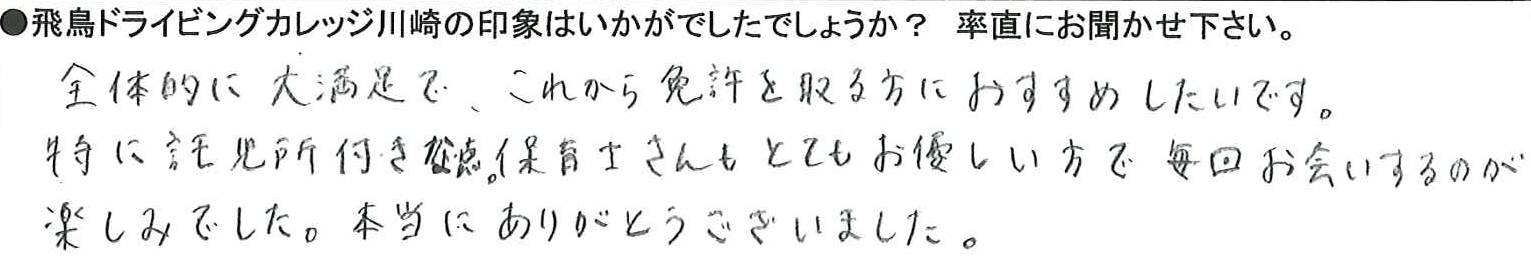 ●飛鳥ドライビングカレッジ川崎の印象はいかがでしたでしょうか？ 率直にお聞かせ下さい。
全体的に大満足で、これから免許を取る方におすすめしたいです。
特に託児所付きな点。保育士さんもとてもお優しい方で毎回お会いするのが
楽しみでした。本当にありがとうございました。